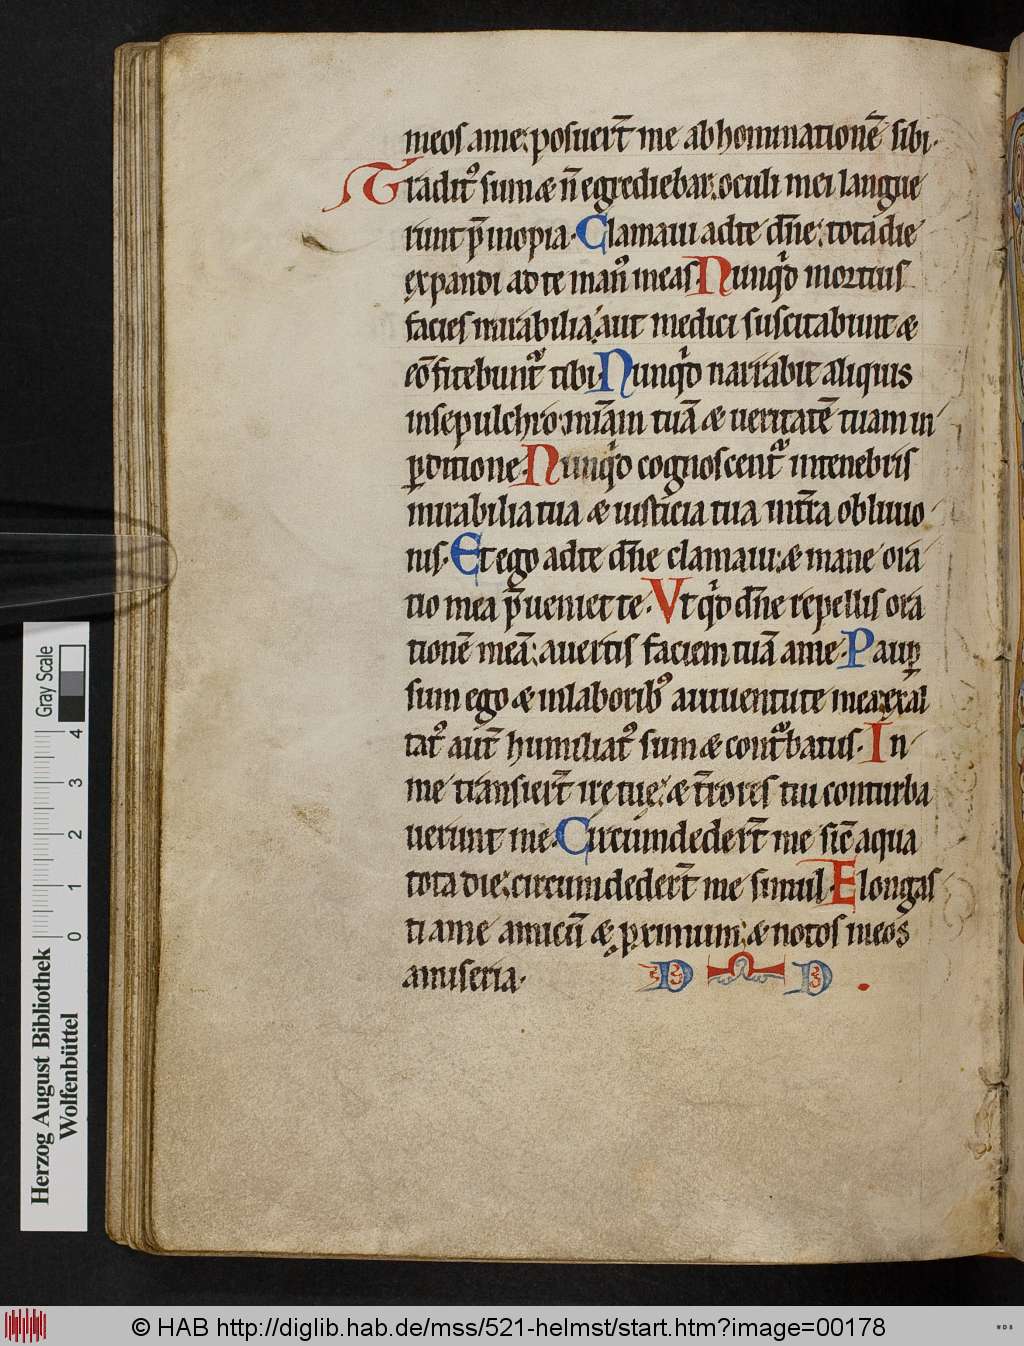 meos a me; posuer̄t me abhominationē sibi.
Tradit᷒ sum & n̄ egrediebar; oculi mei langue
runt p̄ inopia. Clamaui ad te dn̄e; tota die
expandi ad te man᷒ meas. Nunqͥd mortuis
facies mirabilia; aut medici suscitabunt &
cōfitebunt᷑ tibi. Nunqͥd narrabit aliquis
in sepulchro; miam̄ tuā & ueritatē tuam in
ꝑditione. Nunqͥd cognoscent᷑ in tenebris
mirabilia tua & iusticia tua in tr̄ra obliuio
nis. Et ego ad te dn̄e clamaui; & mane ora
tio mea p̄ueniet te. Vt qͥd dn̄e repellis ora
tionē meā; auertis faciem tuā a me. Pauꝑ
sum ego & in laborib᷒ a iuuentute mea; exal
tat᷒ aut̄ humiliat᷒ sum & contᷓbatus. In
me transier̄t ire tue; & tr̄rores tui conturba
uerunt me. Circumdeder̄t me sic̄ aqua
tota die; circumdeder̄t me simul. Elongas
ti a me amicū & ꝓximum; & notos meos
a miseria.
Gray Scale
0 1 2 3 4
Herzog August Bibliothek
Wolfenbüttel
© HAB http://diglib.hab.de/mss/521-helmst/start.htm?image=00178